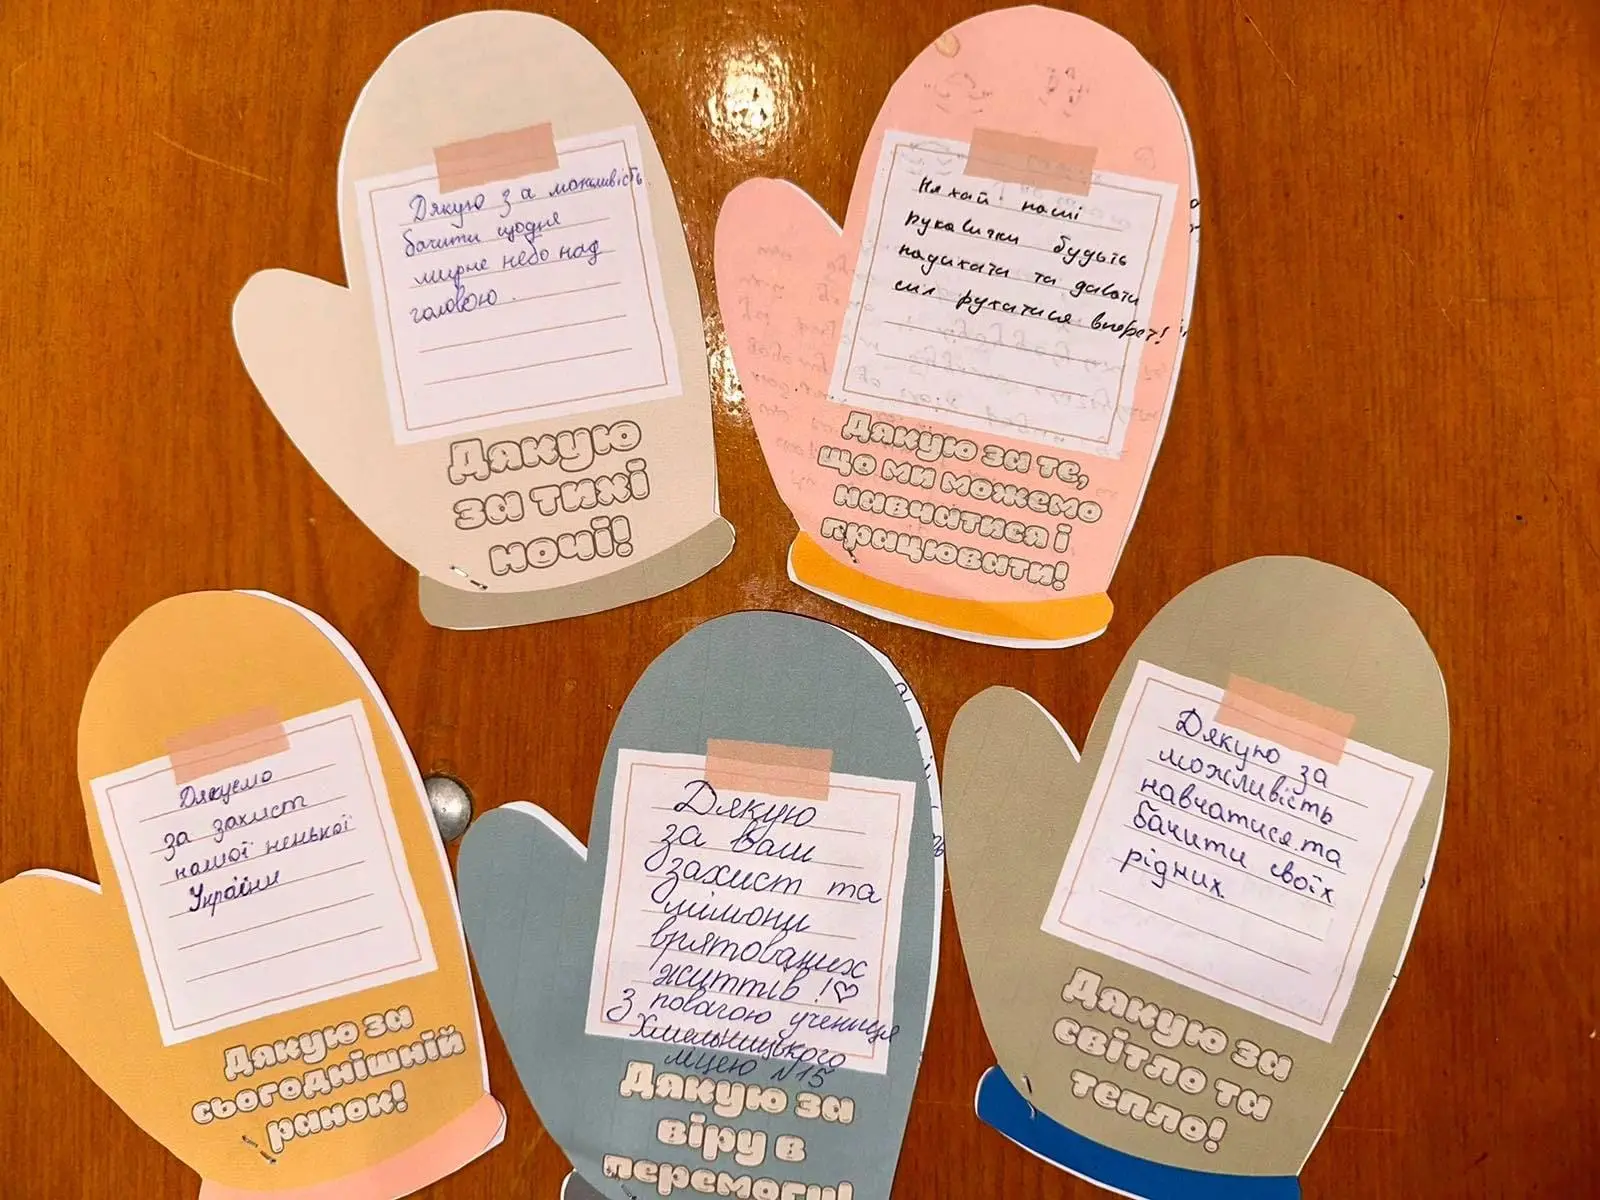 Дякую за можливість
бачити щодня
мирне небо над
головою.
Дякую
за тихі
ночі!
Нехай наші
рукавички будуть
надихати та давати
сил рухатися вперет!
Дякую за те,
що ми можемо
навчатися і
працювати!
Дякуємо
за захист
нашої неньки
України
Дякую за
сьогоднішній
ранок!
Дякую
за ваш
захист та
мільйони
врятованих
життів!♡
З повагою учениця
Хмельницького
ліцею №15
Дякую за
віру в
перемогу!
Дякую за
можливість
навчатися.та
бачити своїх
рідних.
Дякую за
світло та
тепло!